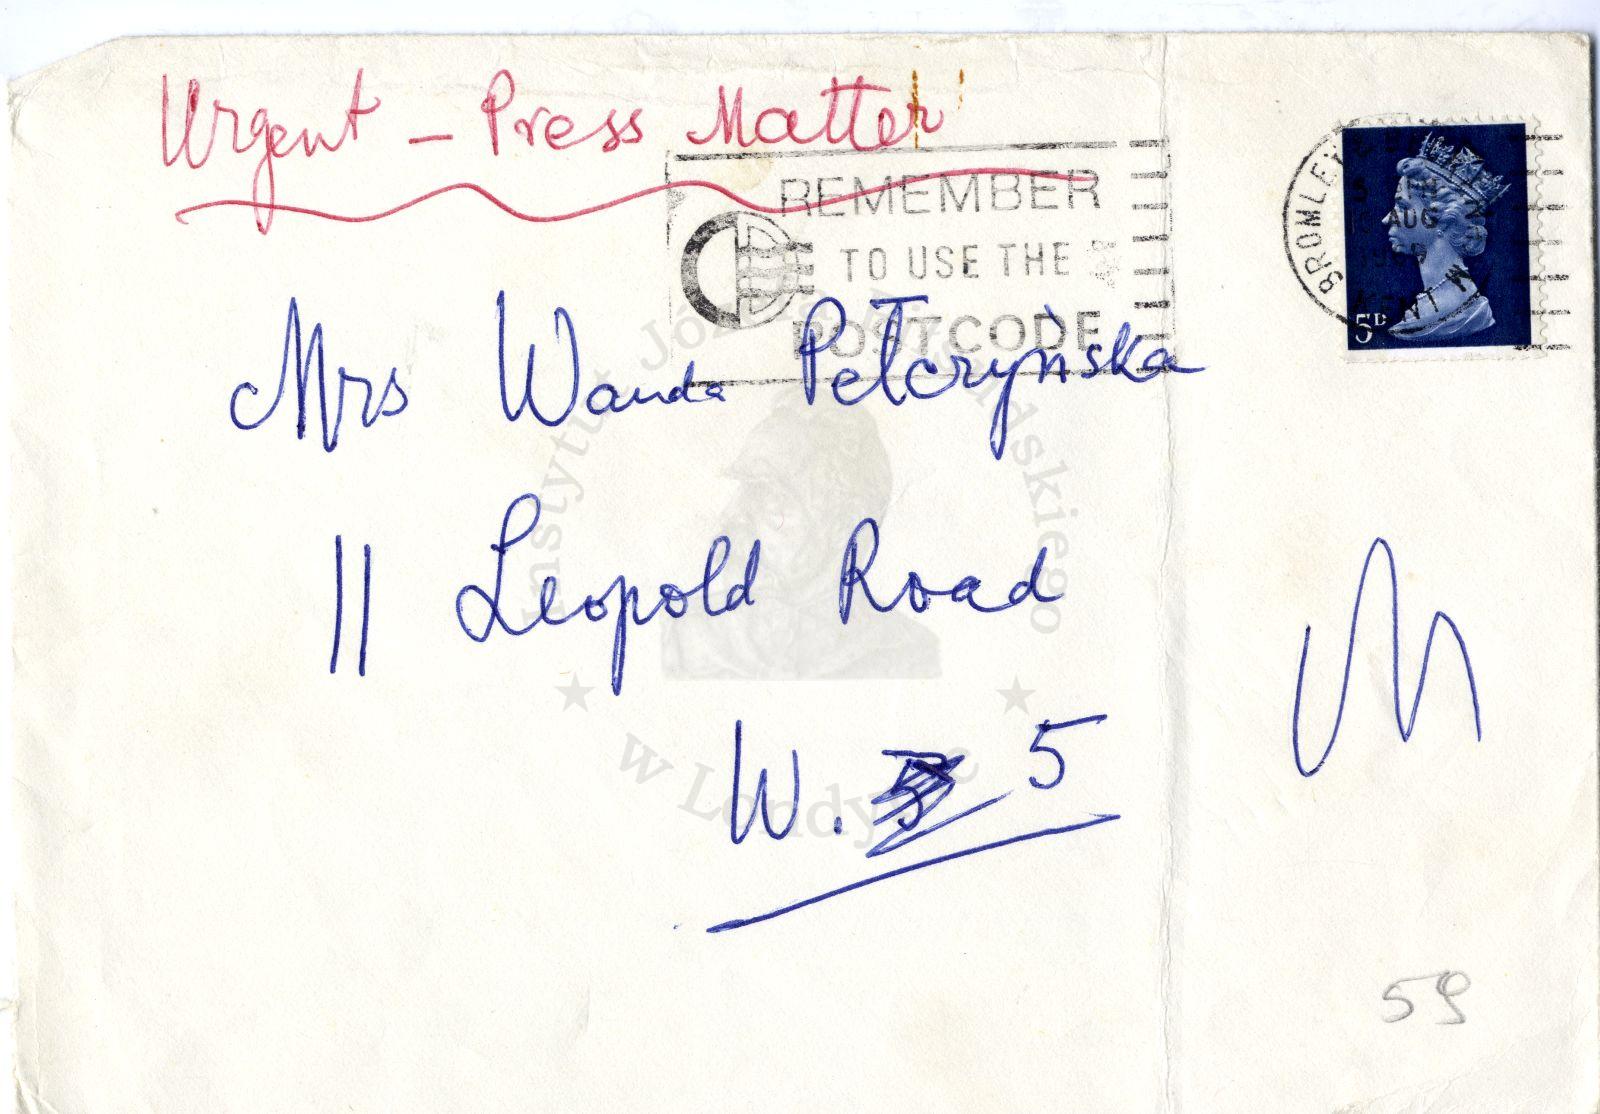 Urgent – Press Matter
REMEMBER
TO USE THE
POSTCODE
BROMLEY
AUG
1969
KENT
5D
Mrs Wanda Pełczyńska
11 Leopold Road
W. 5 5
59
Instytut Józefa Piłsudskiego
w Londynie